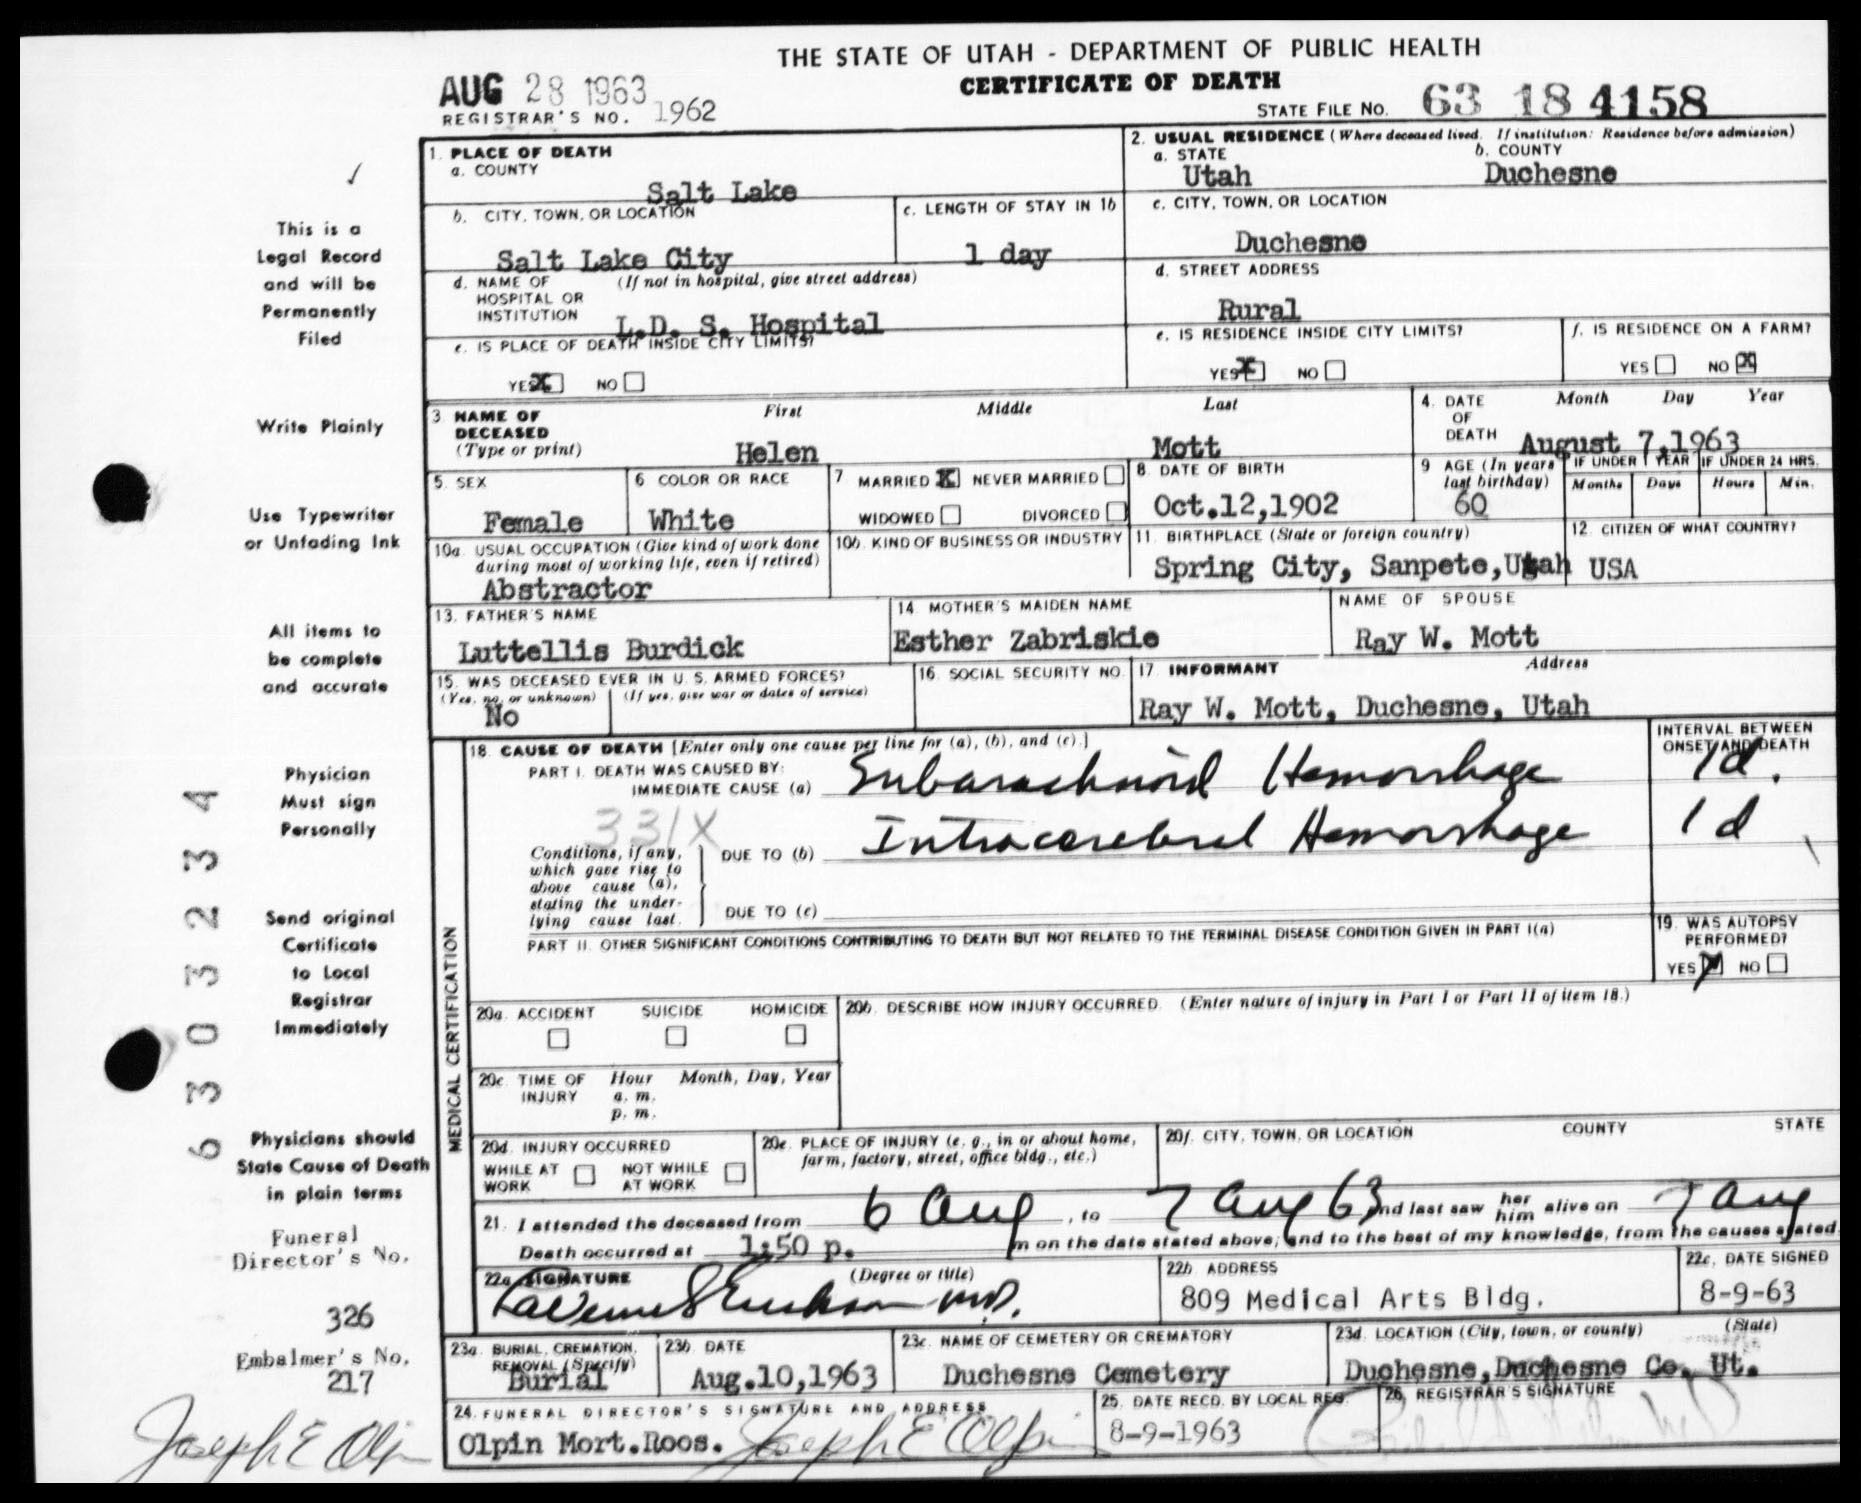 THE STATE OF UTAH - DEPARTMENT OF PUBLIC HEALTH
CERTIFICATE OF DEATH
AUG 28 1963
REGISTRAR'S NO. 1962
STATE FILE NO. 63 18 4158
1. PLACE OF DEATH
a. COUNTY
Salt Lake
2. USUAL RESIDENCE (Where deceased lived. If institution: Residence before admission)
a. STATE
Utah
b. COUNTY
Duchesne
b. CITY, TOWN, OR LOCATION
Salt Lake City
c. LENGTH OF STAY IN 1b
1 day
c. CITY, TOWN, OR LOCATION
Duchesne
d. NAME OF HOSPITAL OR INSTITUTION (If not in hospital, give street address)
L.D. S. Hospital
d. STREET ADDRESS
Rural
e. IS PLACE OF DEATH INSIDE CITY LIMITS?
YES X NO
e. IS RESIDENCE INSIDE CITY LIMITS?
YES X NO
f. IS RESIDENCE ON A FARM?
YES NO X
3. NAME OF DECEASED (Type or print)
First Middle Last
Helen Mott
4. DATE OF DEATH
Month Day Year
August 7,1963
5. SEX
Female
6 COLOR OR RACE
White
7 MARRIED X NEVER MARRIED
WIDOWED DIVORCED
8. DATE OF BIRTH
Oct.12,1902
9 AGE (In years last birthday)
60
IF UNDER 1 YEAR
Months Days
IF UNDER 24 HRS.
Hours Min.
10a. USUAL OCCUPATION (Give kind of work done during most of working life, even if retired)
Abstractor
10b. KIND OF BUSINESS OR INDUSTRY
11. BIRTHPLACE (State or foreign country)
Spring City, Sanpete,Utah
12. CITIZEN OF WHAT COUNTRY?
USA
13. FATHER'S NAME
Luttellis Burdick
14 MOTHER'S MAIDEN NAME
Esther Zabriskie
NAME OF SPOUSE
Ray W. Mott
15. WAS DECEASED EVER IN U. S. ARMED FORCES?
(Yes, no, or unknown) (If yes, give war or dates of service)
No
16. SOCIAL SECURITY NO.
17 INFORMANT Address
Ray W. Mott, Duchesne, Utah
MEDICAL CERTIFICATION
18. CAUSE OF DEATH [Enter only one cause per line for (a), (b), and (c).]
INTERVAL BETWEEN ONSET AND DEATH
PART I. DEATH WAS CAUSED BY:
IMMEDIATE CAUSE (a) Subarachnoid Hemorrhage 1d.
331X
Conditions, if any, which gave rise to above cause (a), stating the underlying cause last.
DUE TO (b) Intracerebral Hemorrhage 1 d
DUE TO (c)
PART II. OTHER SIGNIFICANT CONDITIONS CONTRIBUTING TO DEATH BUT NOT RELATED TO THE TERMINAL DISEASE CONDITION GIVEN IN PART I(a)
19. WAS AUTOPSY PERFORMED?
YES X NO
20a. ACCIDENT SUICIDE HOMICIDE
20b. DESCRIBE HOW INJURY OCCURRED. (Enter nature of injury in Part I or Part II of item 18.)
20c. TIME OF INJURY
Hour Month, Day, Year
a. m.
p. m.
20d. INJURY OCCURRED
WHILE AT WORK NOT WHILE AT WORK
20e. PLACE OF INJURY (e. g., in or about home, farm, factory, street, office bldg., etc.)
20f. CITY, TOWN, OR LOCATION COUNTY STATE
21. I attended the deceased from 6 Aug, to 7 Aug 63 and last saw her him alive on 7 Aug
Death occurred at 1:50 p. m on the date stated above; and to the best of my knowledge, from the causes stated.
22a. SIGNATURE (Degree or title)
M.D.
22b. ADDRESS
809 Medical Arts Bldg.
22c. DATE SIGNED
8-9-63
23a. BURIAL, CREMATION, REMOVAL (Specify)
Burial
23b. DATE
Aug.10,1963
23c. NAME OF CEMETERY OR CREMATORY
Duchesne Cemetery
23d. LOCATION (City, town, or county) (State)
Duchesne,Duchesne Co. Ut.
24. FUNERAL DIRECTOR'S SIGNATURE AND ADDRESS
Olpin Mort.Roos. Joseph E Olpin
25. DATE RECD. BY LOCAL REG.
8-9-1963
26. REGISTRAR'S SIGNATURE
This is a
Legal Record
and will be
Permanently
Filed
Write Plainly
Use Typewriter
or Unfading Ink
All items to
be complete
and accurate
Physician
Must sign
Personally
Send original
Certificate
to Local
Registrar
Immediately
Physicians should
State Cause of Death
in plain terms
Funeral
Director's No.
326
Embalmer's No.
217
Joseph E Olpin
6 3 0 3 2 3 3 4